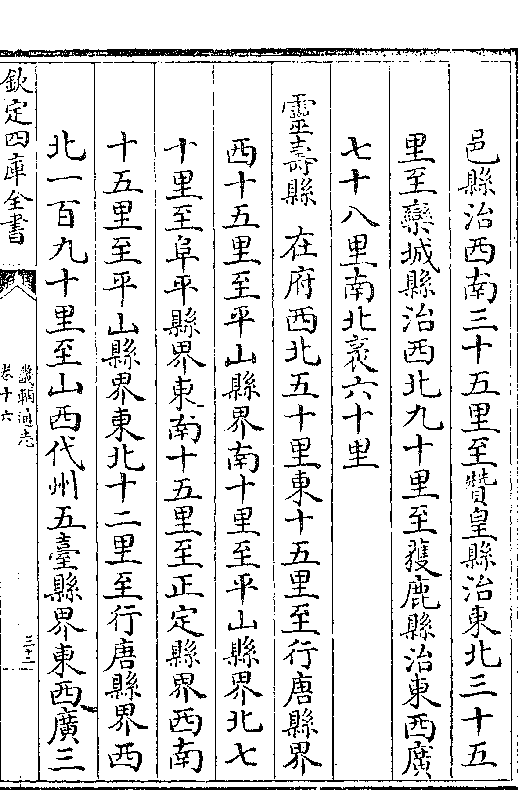 邑縣治西南三十五里至贊皇縣治東北三十五
里至欒城縣治西北九十里至獲鹿縣治東西廣
七十八里南北袤六十里
靈壽縣 在府西北五十里東十五里至行唐縣界
西十五里至平山縣界南十里至平山縣界北七
十里至阜平縣界東南十五里至正定縣界西南
十五里至平山縣界東北十二里至行唐縣界西
北一百九十里至山西代州五臺縣界東西廣三
欽定四庫全書
畿輔通志
卷十六
三十二